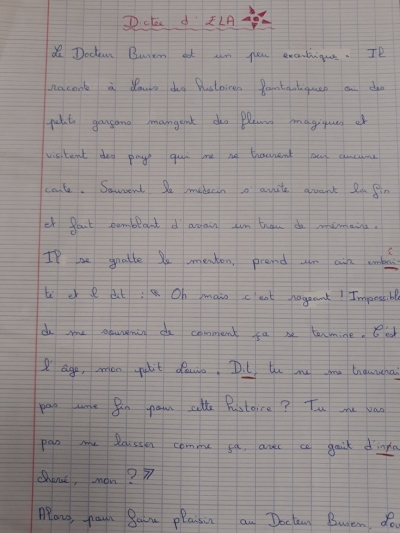 Dictée d'ELA
Le Docteur Buren est un peu excentrique. Il
raconte à Louis des histoires fantastiques ou des
petits garçons mangent des fleurs magiques et
visitent des pays qui ne se trouvent sur aucune
carte. Souvent le médecin s'arrête avant la fin
et fait semblant d'avoir un trou de mémoire.
Il se gratte le menton, prend un air
té et il dit : « Oh mais c'est rageant ! Impossible
de me souvenir de comment ça se termine. C'est
l'âge, mon petit Louis. Dit, tu ne me trouverai
pas une fin pour cette histoire ? Tu ne vas
pas me laisser comme ça, avec ce goût d'ina
chevé, non ? »
Alors, pour faire plaisir au Docteur Buren, Lou